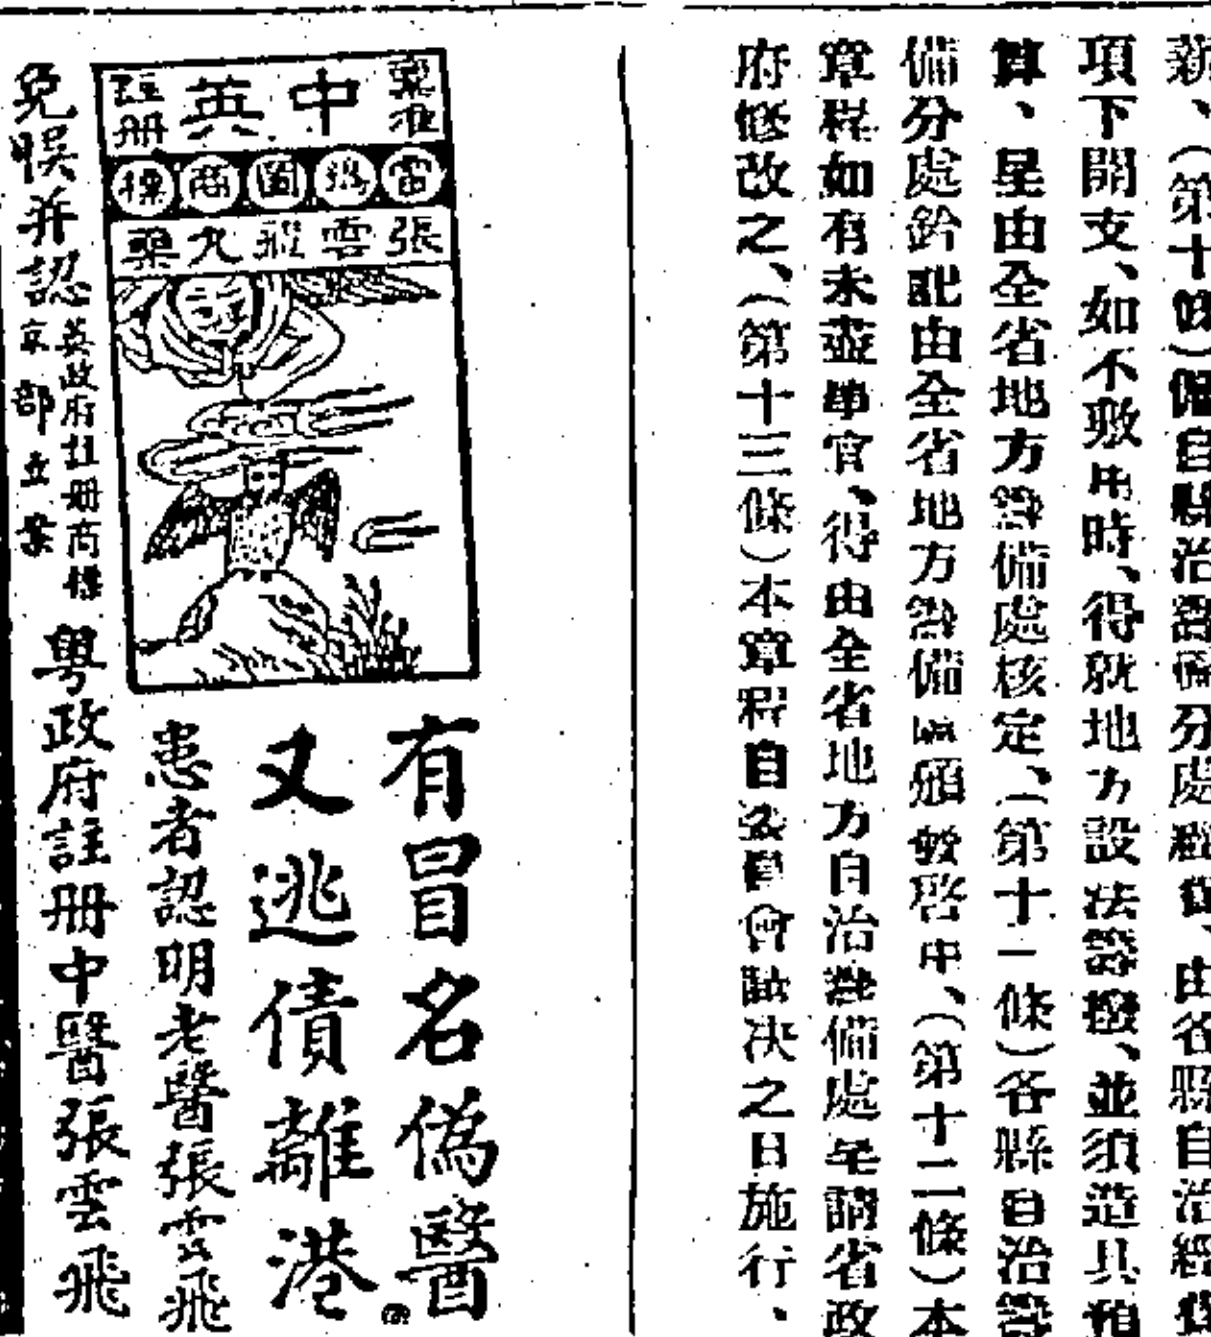 薪、（第十條）備自縣治籌備分處經費、由各縣自治經費
項下開支、如不敷用時、得就地方設法籌撥、並須造具預
算、呈由全省地方籌備處核定、（第十一條）各縣自治籌
備分處鈐記由全省地方籌備處頒發啓用、（第十二條）本
章程如有未盡事宜、得由全省地方自治籌備處呈請省政
府修改之、（第十三條）本章程自委員會議決之日施行、
有冒名偽醫
又逃債離港
患者認明老醫張雲飛
中英
註册
雷鳥圖商標
張雲飛九藥
免悞并認
英政府註册商標
京部立案
粵政府註册中醫張雲飛